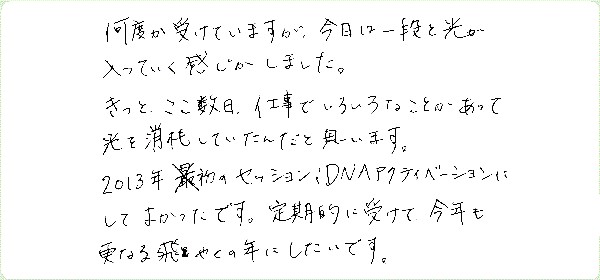 何度か受けていますが、今日は一段と光が
入っていく感じがしました。
きっと、ここ数日、仕事でいろいろなことがあって
光を消耗していたんだと思います。
2013年最初のセッション;DNAアクティベーションに
してよかったです。定期的に受けて、今年も
更なる飛やくの年にしたいです。